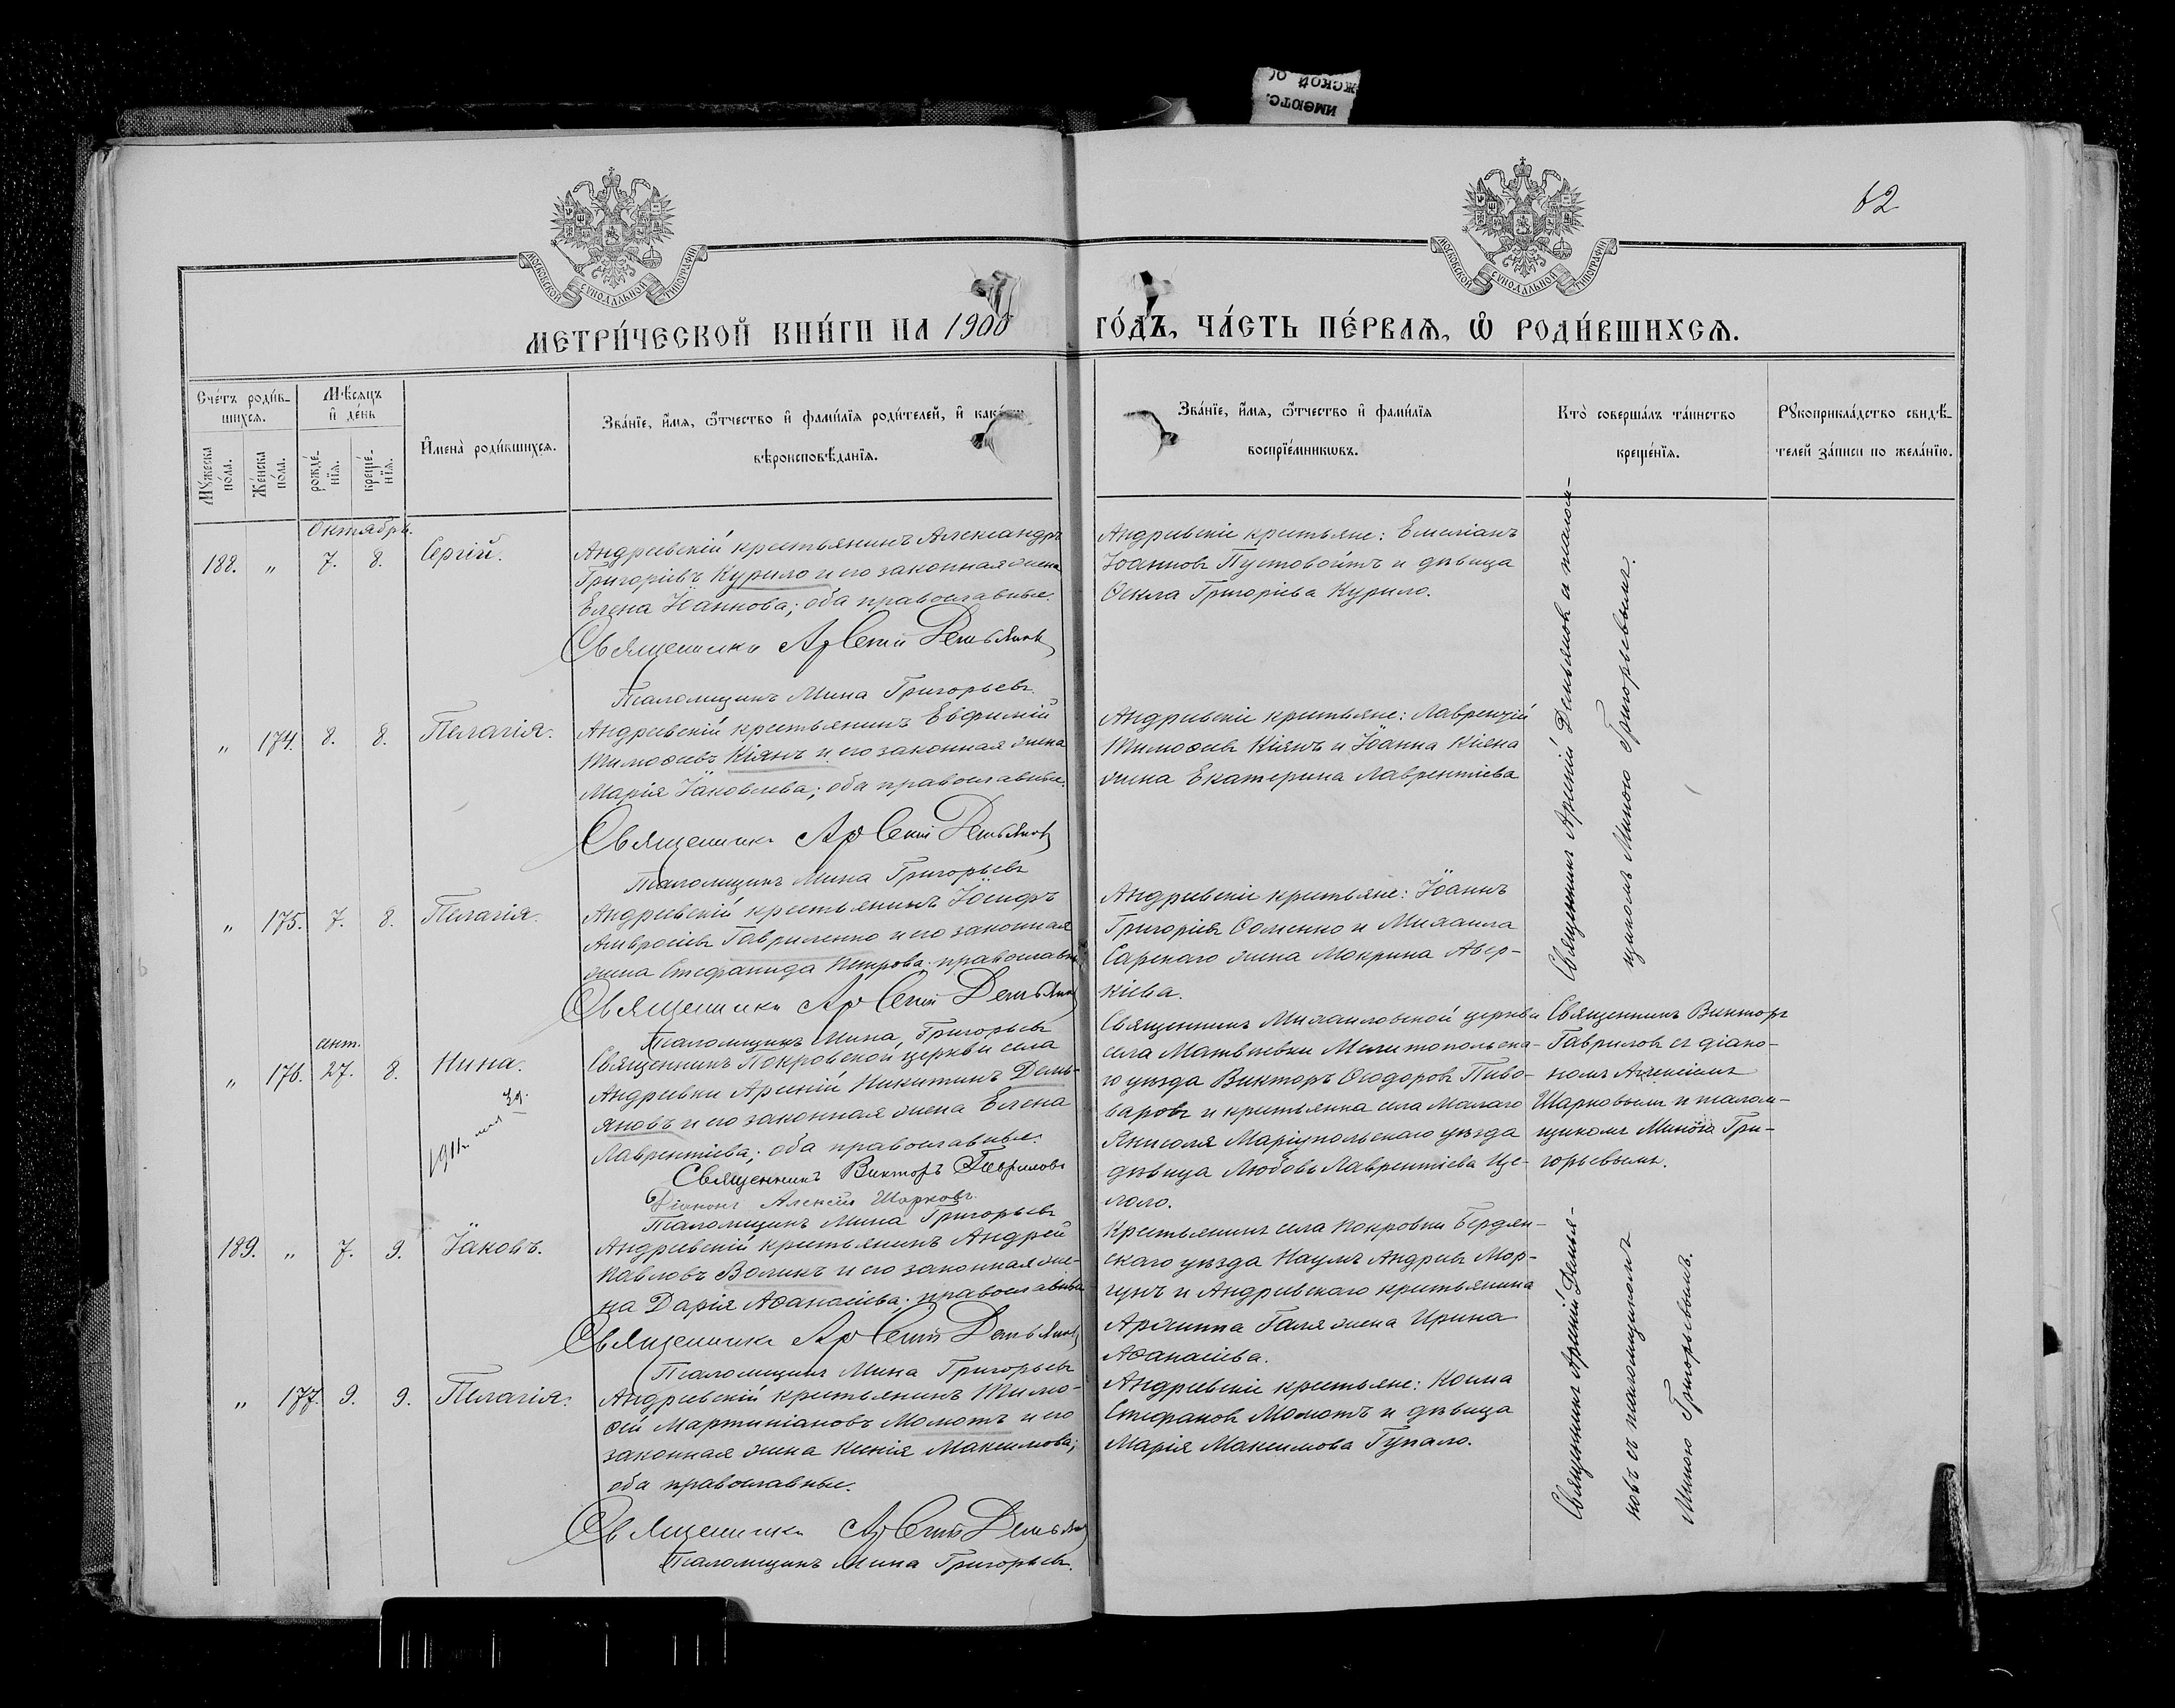 62
МОСКОВСКОЙ СУНОДАЛЬНОЙ ТИПОГРАФІИ
МОСКОВСКОЙ СУНОДАЛЬНОЙ ТИПОГРАФІИ
МЕТРИ́ЧЕСКОЙ КНИ́ГИ НА 1900 ГО́ДЪ, ЧА́СТЬ ПЕ́РВАѦ, Ѽ РОДИ́ВШИХСѦ.
Сче́тъ роди́в-
шихсѧ.
Мꙋ́жеска по́ла.
Же́нска по́ла.
Мѣ́сѧцъ
и҆ де́нь
рожде́-
нїѧ.
креще́-
нїѧ.
И҆мена̀ роди́вшихсѧ.
Зва́нїе, и҆́мѧ, ѻ҆́тчество и҆ фами́лїѧ роди́телей, и҆
вѣроисповѣ́данїѧ.
Зва́нїе, и҆́мѧ, ѻ҆́тчество и҆ фами́лїѧ
воспрїе́мникѡвъ.
Кто̀ соверша́лъ та́инство
креще́нїѧ.
Рꙋкоприкла́дство свидѣ́-
телей за́писи по жела́нїю.
Октябрь.
188. „ 7. 8. Сергій.
Андреевскій крестьянинъ Александръ
Григоріевъ Курило и его законная жена
Елена Іоаннова; оба православные.
Священникъ Арсеній Демьяновъ
Псаломщикъ Мина Григорьевъ.
Андреевскіе крестьяне: Емеліанъ
Іоанновъ Пустовойтъ и дѣвица
Ѳекла Григоріева Курило.
Священникъ Арсеній Демьяновъ и псалом-
щикомъ Миною Григорьевымъ.
„ 174. 8. 8. Пелагія.
Андреевскій крестьянинъ Евфимій
Тимоѳеевъ Кіянъ и его законная жена
Марія Іаковлева; оба православные.
Священникъ Арсеній Демьяновъ
Псаломщикъ Мина Григорьевъ
Андреевскіе крестьяне: Лаврентій
Тимоѳеевъ Кіянъ и Іоанна Кіяна
жена Екатерина Лаврентіева
„ 175. 7. 8. Пелагія.
Андреевскій крестьянинъ Іосифъ
Амвросіевъ Гавриленко и его законная
жена Стефанида Петрова; православные
Священникъ Арсеній Демьяновъ
Псаломщикъ Мина Григорьевъ
Андреевскіе крестьяне: Іоаннъ
Григоріевъ Ѳоменко и Михаила
Сарскаго жена Мокрина Авер-
кіева.
сент.
„ 176. 27. 8. Нина.
Священникъ Покровской церкви села
Андреевки Арсеній Никитинъ Демь-
яновъ и его законная жена Елена
Лаврентіева; оба православные.
Священникъ Викторъ Гавриловъ
Діаконъ Алексій Шарковъ.
Псаломщикъ Мина Григорьевъ
Священникъ Михаиловской церкви
села Матвѣевки Мелитопольска-
го уѣзда Викторъ Ѳеодоровъ Пиво-
варовъ и крестьянка села Малаго
Янисоля Маріупольскаго уѣзда
дѣвица Любовь Лаврентіева Ще-
голо.
Священникъ Викторъ
Гавриловъ съ діако-
номъ Алексіемъ
Шарковымъ и псалом-
щикомъ Миною Гри-
горьевымъ.
189. „ 7. 9. Іаковъ.
Андреевскій крестьянинъ Андрей
Павловъ Воликъ и его законная же-
на Дарія Аѳанасіева; православные
Священникъ Арсеній Демьяновъ
Псаломщикъ Мина Григорьевъ
Крестьянинъ села Покровки Бердян-
скаго уѣзда Наумъ Андреевъ Мор-
гунъ и Андреевскаго крестьянина
Архиппа Галя жена Ирина
Аѳанасіева.
Священникъ Арсеній Демья-
новъ съ псаломщикомъ
Миною Григорьевымъ.
„ 177. 9. 9. Пелагія.
Андреевскій крестьянинъ Тимо-
ѳей Мартиніановъ Момотъ и его
законная жена Ксенія Максимова;
оба православные.
Священникъ Арсеній Демьяновъ
Псаломщикъ Мина Григорьевъ.
Андреевскіе крестьяне: Косма
Стефановъ Момотъ и дѣвица
Марія Максимова Гупало.